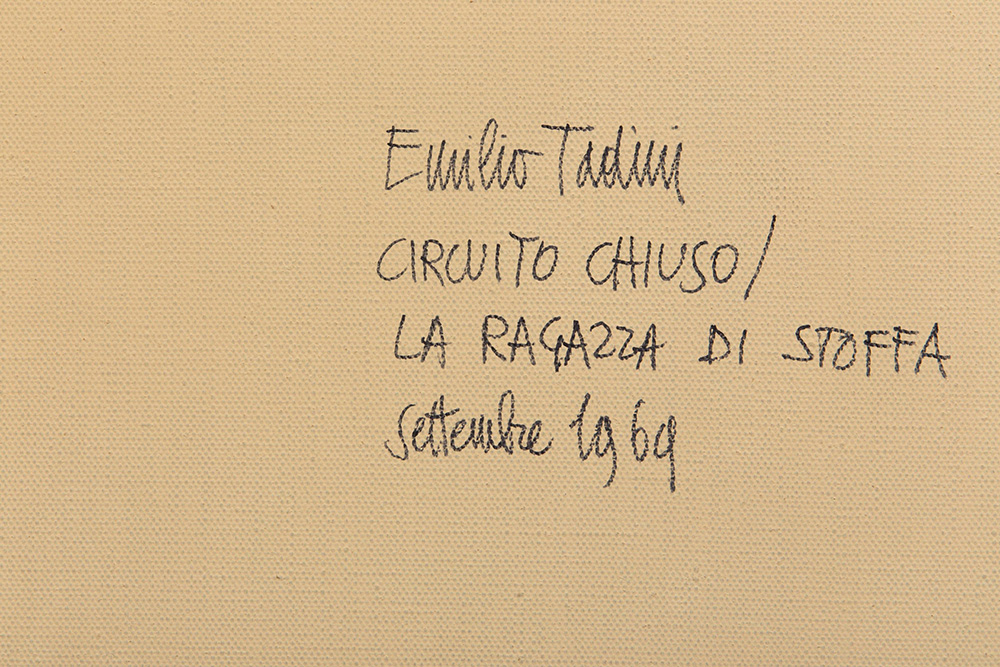 Emilio Tadini
CIRCUITO CHIUSO/
LA RAGAZZA DI STOFFA
settembre 1969